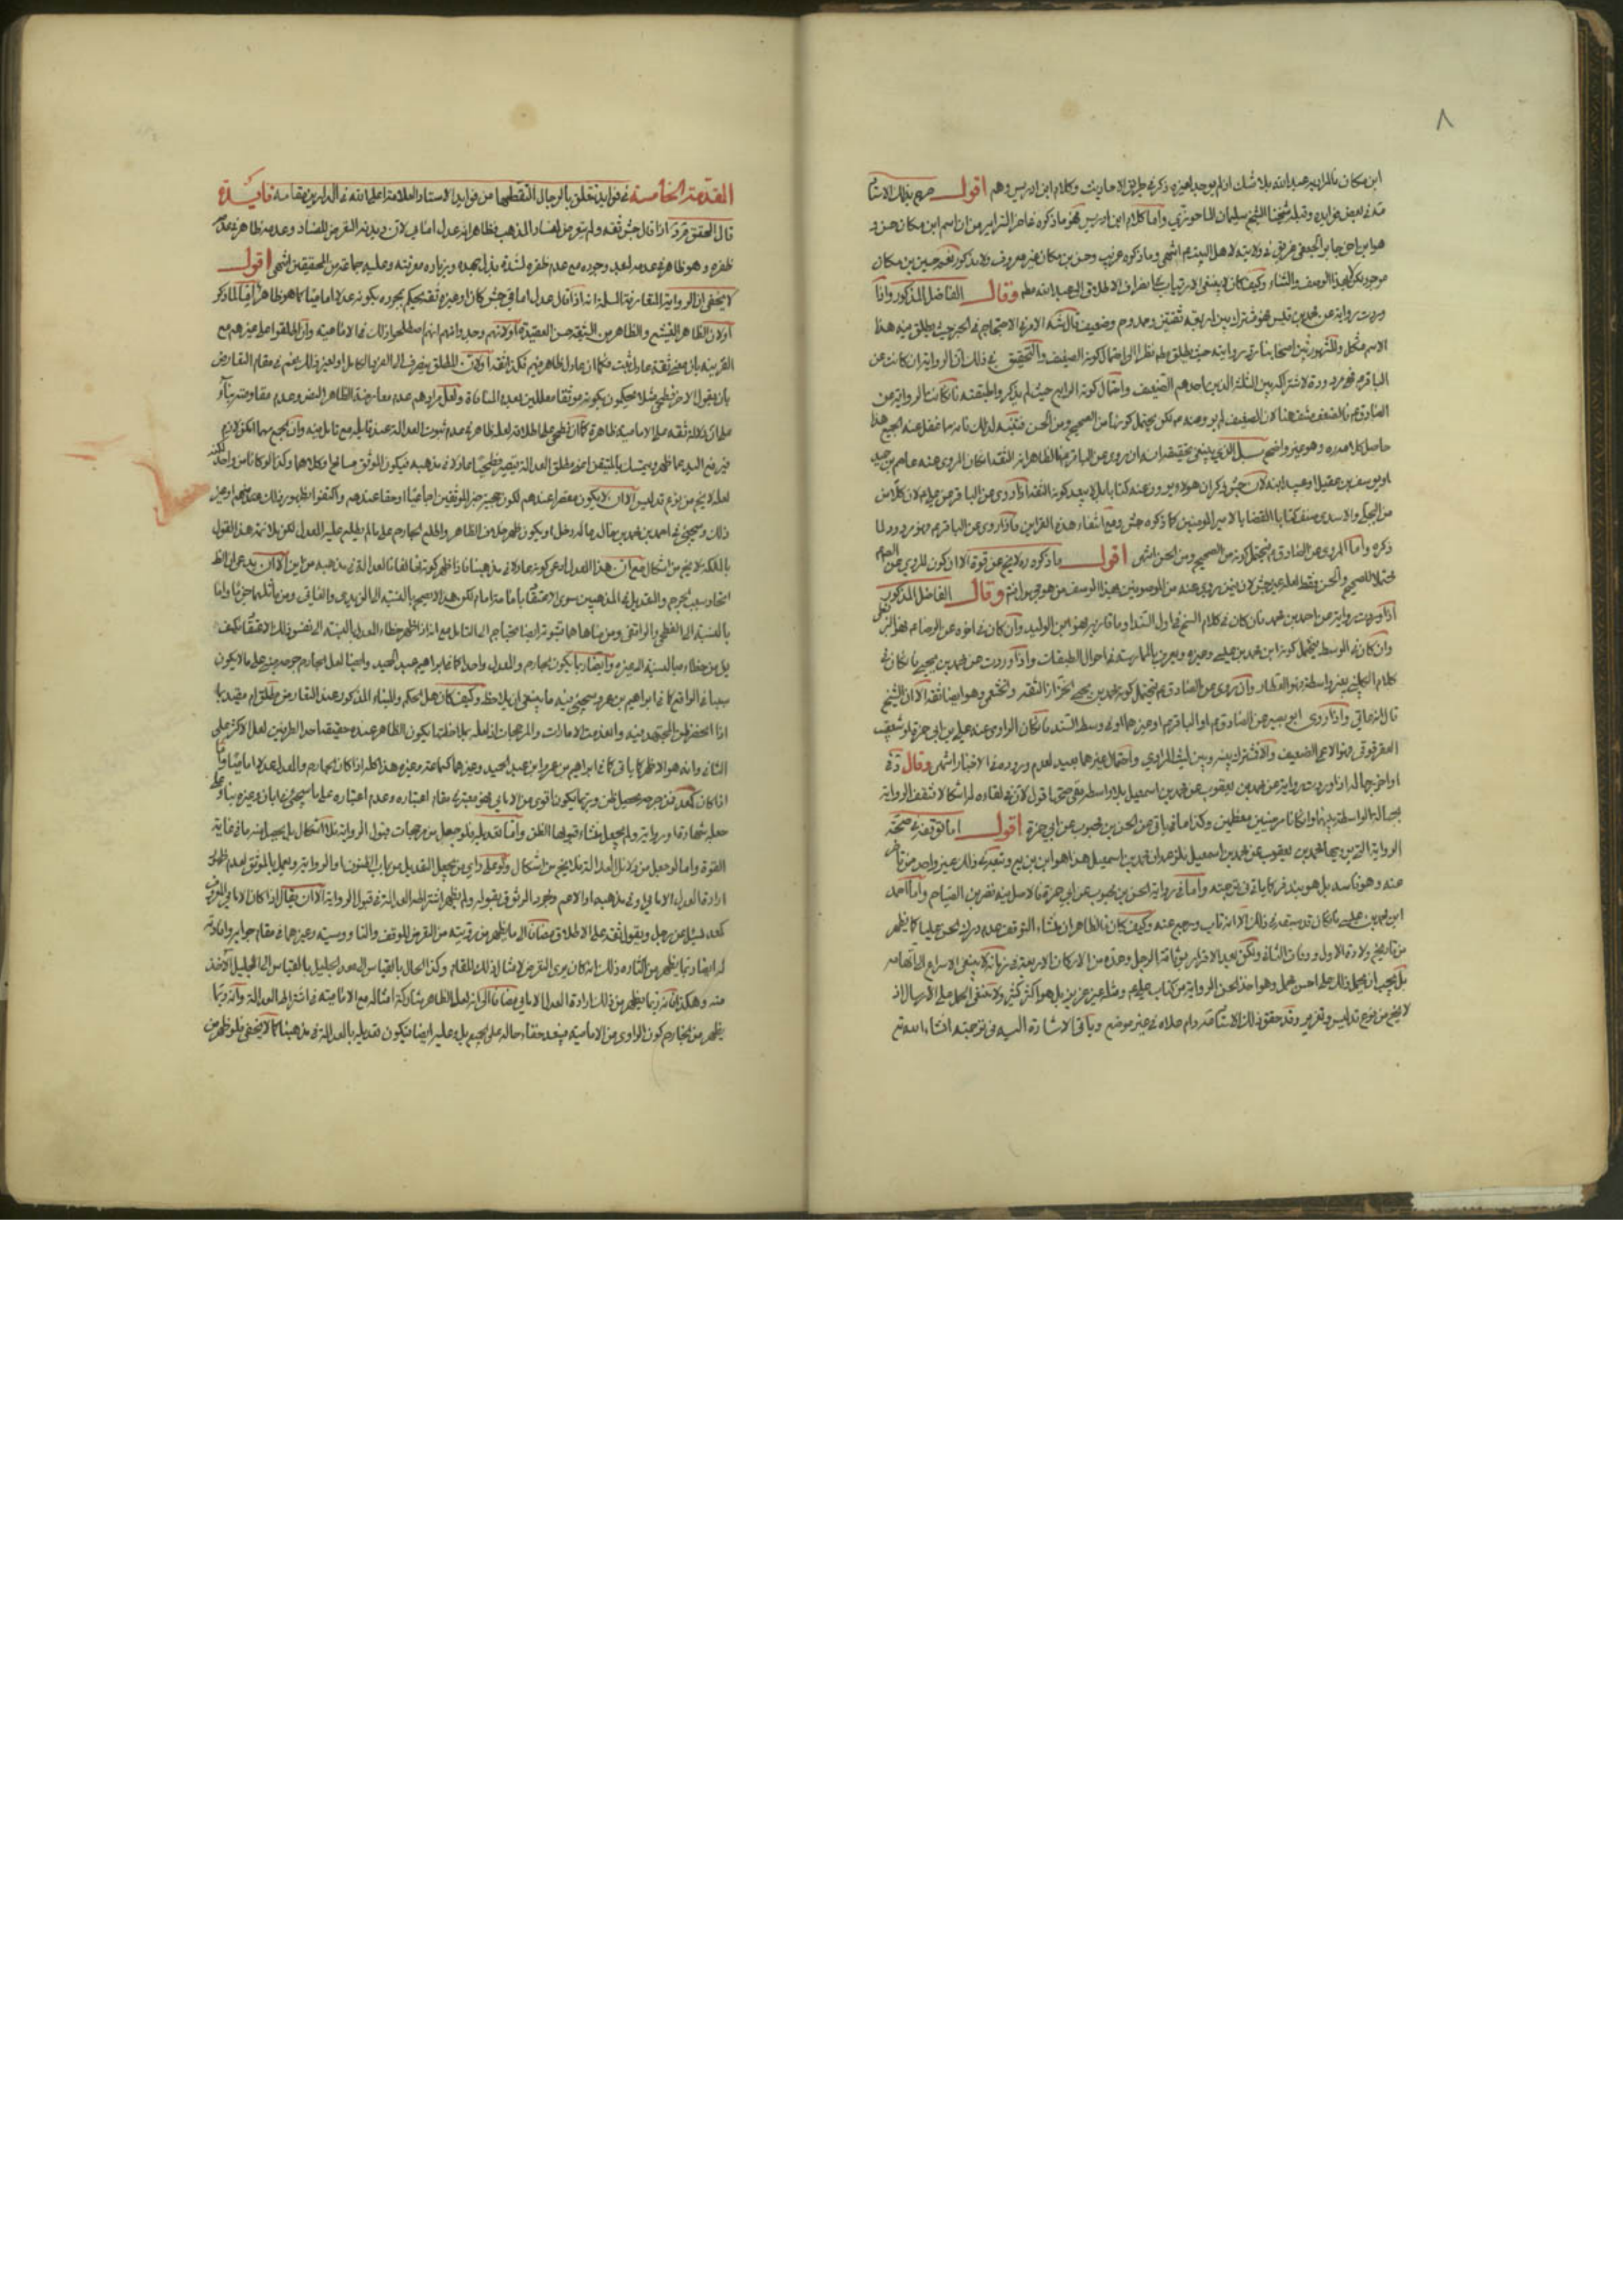 ٨
ابن مسكان فالمراد به عبد الله بلا شك اذ لم يوجد لغيره ذكر في طريق الاحاديث وكلام ابن ادريس وهم اقول صرح بذلك الاستاد
في بعض فوايده وقبله شيخنا الشيخ سليمان الماحوزي واما كلام ابن ادريس فهو ما ذكره في اخر السرائر من ان اسم ابن مسكان حسن و
هو ابن اخي جابر الجعفي غريق في ولايته لاهل البيت عم انتهى وما ذكره غريب وحسن بن مسكان غير معروف ولا مذكور نعم حسين بن مسكان
موجود لكن بهذا الوصف والثناء وكيف كان لا ينبغي الارتياب في انصراف الاطلاق الى عبد الله وقال الفاضل المذكور واذا
وردت رواية عن محمد بن قيس فهو مشترك بين اربعة ثقتين وممدوح وضعيف
الاسم مشكل والمشهور بين اصحابنا رد روايته حيث يطلق نظرا الى احتمال كونه الضعيف والتحقيق في ذلك ان الرواية ان كانت عن
الباقر عم فهي مردودة لاشتراكه بين الثلثة الذين احدهم الضعيف واحتمال كونه الرابع حيث لم يذكر واطبقته وان كانت الرواية عن
الصادق عم فالضعف منتف هنا لان الضعيف لم يرو عنه عم لكن يحتمل كونها من الصحيح ومن الحسن فتنبه لذلك فانه مما غفل عنه الجميع هذا
حاصل كلامه وهو غير واضح بل الذي ينبغي تحقيقه انه ان روى عن الباقر عم فالظاهر انه الثقة ان كان الراوي عنه عاصم بن حميد
او يوسف بن عقيل او عبيد ابنه لان جش ذكر ان هولاء يروون عنه كتابا بل لا يبعد كونه الثقة اذا روى عن الباقر عن علي عم لان كلا من
من البجلي والاسدي صنف كتاب القضايا لامير المؤمنين كما ذكره جش ومع انتفاء هذه القراين فاذا روى عن الباقر عم فهو مردود لما
ذكره واما المروي عن الصادق عم فيحتمل كونه من الصحيح ومن الحسن انتهى اقول ما ذكره ره لا يخ عن قوة الا ان كون المروي عن الصادق عم
محتملا للصحيح والحسن فقط لعله غير جش لان فيمن روى عنه من الموصوفين بهذا الوصف من هو مهمل ايضا وقال الفاضل المذكور
اذا وردت رواية عن احمد بن محمد فان كان في كلام الشيخ في اول السند او ما قاربه فهو ابن الوليد وان كان في اخره عن الرضا عم فهو البزنطي
وان كان في الوسط فيحتمل كونه ابن محمد بن عيسى وغيره ويعرف بالممارسة في احوال الطبقات واذا وردت عن محمد بن يحيى فان كان في
كلام الكليني بغير واسطة فهو العطار وان روى عن الصادق عم فيحتمل كونه محمد بن يحيى الخزاز الثقة والخثعمي وهو ايضا ثقة الا ان الشيخ
قال انه عامي واذا روى ابو بصير عن الصادق عم او الباقر عم او غيرهما او في وسط السند فان كان الراوي عنه علي بن ابي حمزة او شعيب
العقرقوفي فهو الاعمى الضعيف والا فمشترك بينه وبين ليث المرادي واحتمال غيرهما بعيد لعدم وروده في الاخبار انتهى وقال في
اواخر رجاله اذا وردت رواية عن محمد بن يعقوب عن محمد بن اسمعيل بلا واسطة ففي صحتها قول لان في لقائه له اشكالا فتقف الرواية
بجهالة الواسطة بينهما وان كانا مرضيين معظمين وكذا ما في باقي عن الحسن بن محبوب عن ابي حمزة اقول اما توقفه في صحة
الرواية التي يرويها محمد بن يعقوب عن محمد بن اسمعيل بلا زعم ان محمد بن اسمعيل هذا هو ابن بزيع وتبعه في ذلك غير واحد ممن تاخر
عنه وهو فاسد بل هو بندفر كما ياتي في ترجمته واما في رواية الحسن بن محبوب عن ابي حمزة فالاصل فيه نصر بن الصباح واما احمد
ابن محمد بن عيسى فان كان قد سبقه في ذلك الا انه تاب ورجع عنه وكيف كان فالظاهر ان منشاء التوقف عدم درك الحسن عليا كما يظهر
من تاريخ ولادة الاول ووفات الثاني ولكن بعد الاقرار بوثاقة الرجل وعده من الاركان الاربعة في زمانه لا ينبغي الاسراع الى اتهامه
بل يجب ان يحمل ذلك على احسن محمل وهو اخذ الحسن الرواية من كتاب علي عم ومثله غير عزيز بل هو اكثر كثير ولا ينبغي الحمل على الارسال اذ
لا يخ من نوع تدليس وتغرير وقد حقق ذلك الاستاد دام علاه في غير موضع وياتي الاشارة اليه في ترجمته انشاء الله تع
المقدمة الخامسة في فوايد تتعلق بالرجال التقطتها من فوايد الاستاد العلامة اعلى الله في الدارين مقامه فايدة
قال المحقق اذا قال جش ثقة ولم يتعرض لفساد المذهب فظاهره انه عدل امامي لان ديدنه التعرض للفساد وعدمه ظاهر في عدم
ظفره وهو ظاهر في عدمه لبعد وجوده مع عدم ظفره لشدة بذل جهده وزياده معرفته وعليه جماعة من المحققين انتهى اقول
لا يخفى ان الرواية المتعارفة المسلمة انه اذا قال عدل امامي جش كان او غيره ثقة يحكم بمجرده بكونه عدلا اماميا كما هو ظاهر اما لما ذكر
او لان الظاهر التشيع والظاهر من الشيعة حسن العقيدة او لانهم وجدوا انهم اصطلحوا ذلك في الامامية وان اطلقوا على غيرهم مع
القرينة بان معنى ثقة عادل ثبت فكما ان عادل ظاهر فيهم فكذا ثقة او لان المطلق ينصرف الى الفرد الكامل او لغير ذلك نعم في مقام التعارض
بان يقول الاخر فطحي مثلا يحكمون بكونه موثقا معللين بعدم المنافاة ولعل مرادهم عدم معارضة الظاهر النص وعدم مقاومته بناء
على ان دلالة ثقة على الامامية ظاهرة كما ان فطحي على اطلاقه لعله ظاهر في عدم ثبوت العدالة عند قايله مع تامل فيه وان الجمع مهما امكن لازم
فيرفع اليد عما ظهر ويتمسك بالمتيقن اعني مطلق العدالة فيصير فطحيا عادلا في مذهبه فيكون الموثق مسامحا وكلاهما وكذا لو كانا من واحد لكنه
لعله لا يخ من نوع تدليس الا ان لا يكون مضرا عندهم لكون حجية خبر الموثقين اجماعيا او حقا عندهم واكتفوا بظهور ذلك عنهم او غير
ذلك وسيجئ في احمد بن محمد بن خالد ماله دخل او يكون ظهر خلاف الظاهر واطلع الجارح على ما لم يطلع عليه المعدل لكن بلايمة هذا القول
بالملكة لا يخ من اشكال مع ان هذا المعدل ادعى كونه عادلا في مذهبنا فاذا ظهر كونه مخالفا فالعدالة في مذهبه من اين الا ان يدعى ان الظ
اتحاد سبب الجرح والتعديل في المذهبين سوى الاعتقاد بامامة امام لكن هذا لا يصح بالنسبة الى الزيدي والعامي ومن ماثلهما جزما واما
بالنسبة الى الفطحي والواقفي ومن ضاهاهما فثبوته ايضا يحتاج الى التامل مع انه اذا ظهر خطاء المعدل بالنسبة الى نفس ذلك الاعتقاد فكيف
يؤمن خطائه بالنسبة الى غيره وايضا ربما يكون الجارح والمعدل واحدا كما في ابراهيم عبد الحميد وايضا لعل الجارح جرحه مبني على ما لا يكون
سببا في الواقع كما في ابراهيم بن عمر وسيجئ فيه ما ينبغي ان يلاحظ وكيف كان هل الحكم والبناء المذكور عند التعارض مطلق ام مقيد بما
اذا انحصر ظن المجتهد فيه وانعدمت الامارات والمرجحات اذ لعله بملاحظتها يكون الظاهر عنده حقيقة احد الطرفين لعل الاكثر على
الثاني وانه هو الاظهر كما ياتي في ابراهيم بن عمر وابن عبد الحميد وغيرهما كسماعة وغيره هذا كله اذا كان الجارح والمعدل عدلا اماميا واما
اذا كان كعد فن جرحه يحصل ظن وربما يكون اقوى من الامامي فهو معتبر في مقام اعتباره وعدم اعتباره على ما سيجئ في ابان وغيره بناء على
جعله شهادة او رواية ولم يجعل منشاء قبولها الظن واما تعديله فلو جعل من مرجحات قبول الرواية فلا اشكال بل يحصل منه ما في غاية
القوة واما لو جعل من دلائل العدالة فلا يخ من اشكال ولو على راي من يجعل التعديل من باب الظنون او الرواية ويعمل بالموثق لعدم ظهور
ارادة العدل الامامي او في مذهبه او الاعم ومجرد الوثوق بقوله ولم يظهر اشتراطه العدالة في قبول الرواية الا ان يقال اذا كان الامامي المعروف
كعد يسئل عن رجل ويقول ثقة على الاطلاق مضافا الى ما يظهر من رويته من التعرض للوقف والناووسية وغيرهما في مقام جوابه وافادته
له ايضا ربما يظهر من الثناء ذلك انه كان يرى التعرض لامثال ذلك للمقام وكذا الحال بالقياس الى محمد الجليل بالقياس الى الجليل الاخذ
عنه وهكذا فانه ربما يظهر من ذلك ارادة العدل الامامي مضافا الى انه لعل الظاهر مشاركة امثاله مع الامامية في اشتراط العدالة وانه ربما
يظهر من الخارج كون الراوي من الامامية فيبعد خفاء حاله على الجميع بل وعليه ايضا فيكون تعديله بالعدالة في مذهبنا كما لا يخفى فلو ظهر من